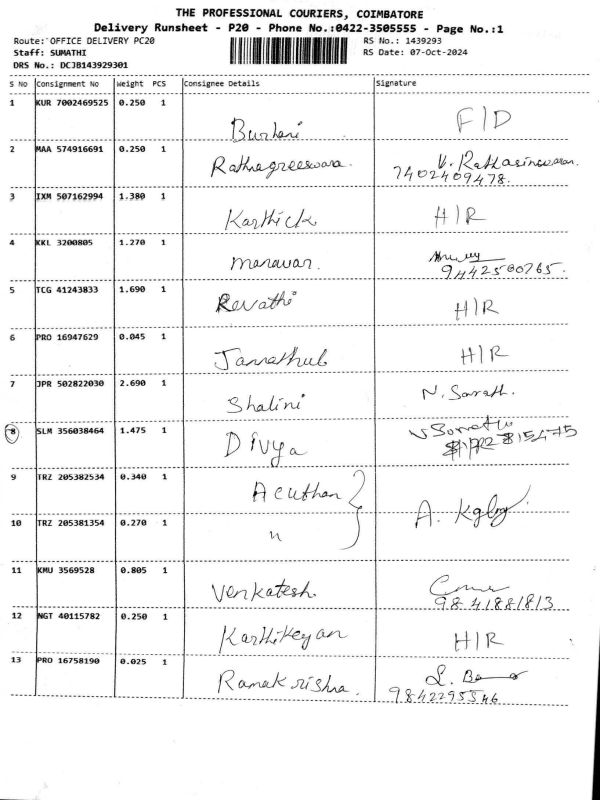 THE PROFESSIONAL COURIERS, COIMBATORE
Delivery Runsheet - P20 - Phone No.:0422-3505555 - Page No.:1
Route: OFFICE DELIVERY PC20 RS No.: 1439293
Staff: SUMATHI RS Date: 07-Oct-2024
DRS No.: DCJB143929301
S No Consignment No Weight PCS Consignee Details Signature
1 KUR 7002469525 0.250 1 Burhani F/D
2 MAA 574916691 0.250 1 Rathagreeswara.
7402409478.
3 IXM 507162994 1.380 1 Karthick H/R
4 KKL 3200805 1.270 1 manavan.
9442500765.
5 TCG 41243833 1.690 1 Revathi H/R
6 PRO 16947629 0.045 1 H/R
7 JPR 502822030 2.690 1 Shalini N. Sarath.
8 SLM 356038464 1.475 1 Divya
9 TRZ 205382534 0.340 1 Acuthan
10 TRZ 205381354 0.270 1 "
11 KMU 3569528 0.805 1 Venkatesh.
9841881813
12 NGT 40115782 0.250 1 Karthikeyan H/R
13 PRO 16758190 0.025 1 Ramakrishna.
9842295546